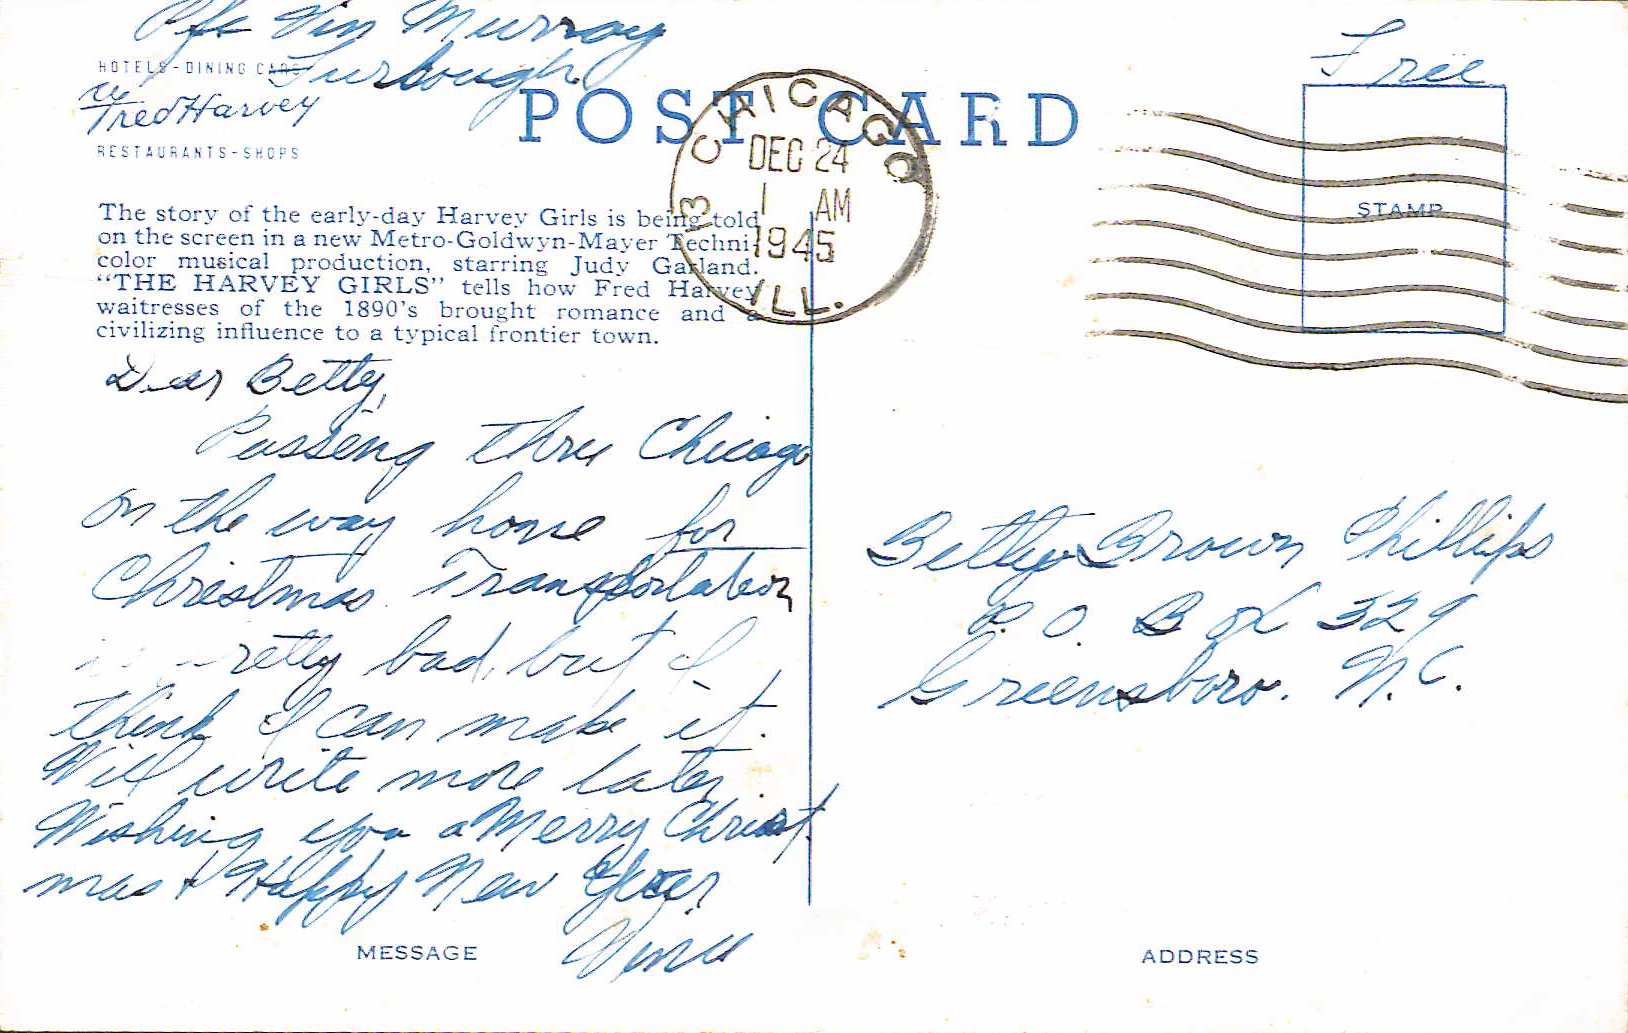 Pfc Vin Murray
Furlough
Free
HOTELS-DINING CARS
Fred Harvey
RESTAURANTS-SHOPS
POST CARD
CHICAGO
DEC 24
1 AM
1945
ILL.
STAMP
The story of the early-day Harvey Girls is being told
on the screen in a new Metro-Goldwyn-Mayer Techni-
color musical production, starring Judy Garland.
"THE HARVEY GIRLS" tells how Fred Harvey
waitresses of the 1890's brought romance and a
civilizing influence to a typical frontier town.
Dear Betty,
Passing thru Chicago
on the way home for
Christmas. Transportation
is pretty bad, but I
think I can make it.
Will write more later.
Wishing you a Merry Christ
mas + Happy New Year
Vince
MESSAGE
Betty Brown Phillips
P.O. Box 329
Greensboro. N.C.
ADDRESS